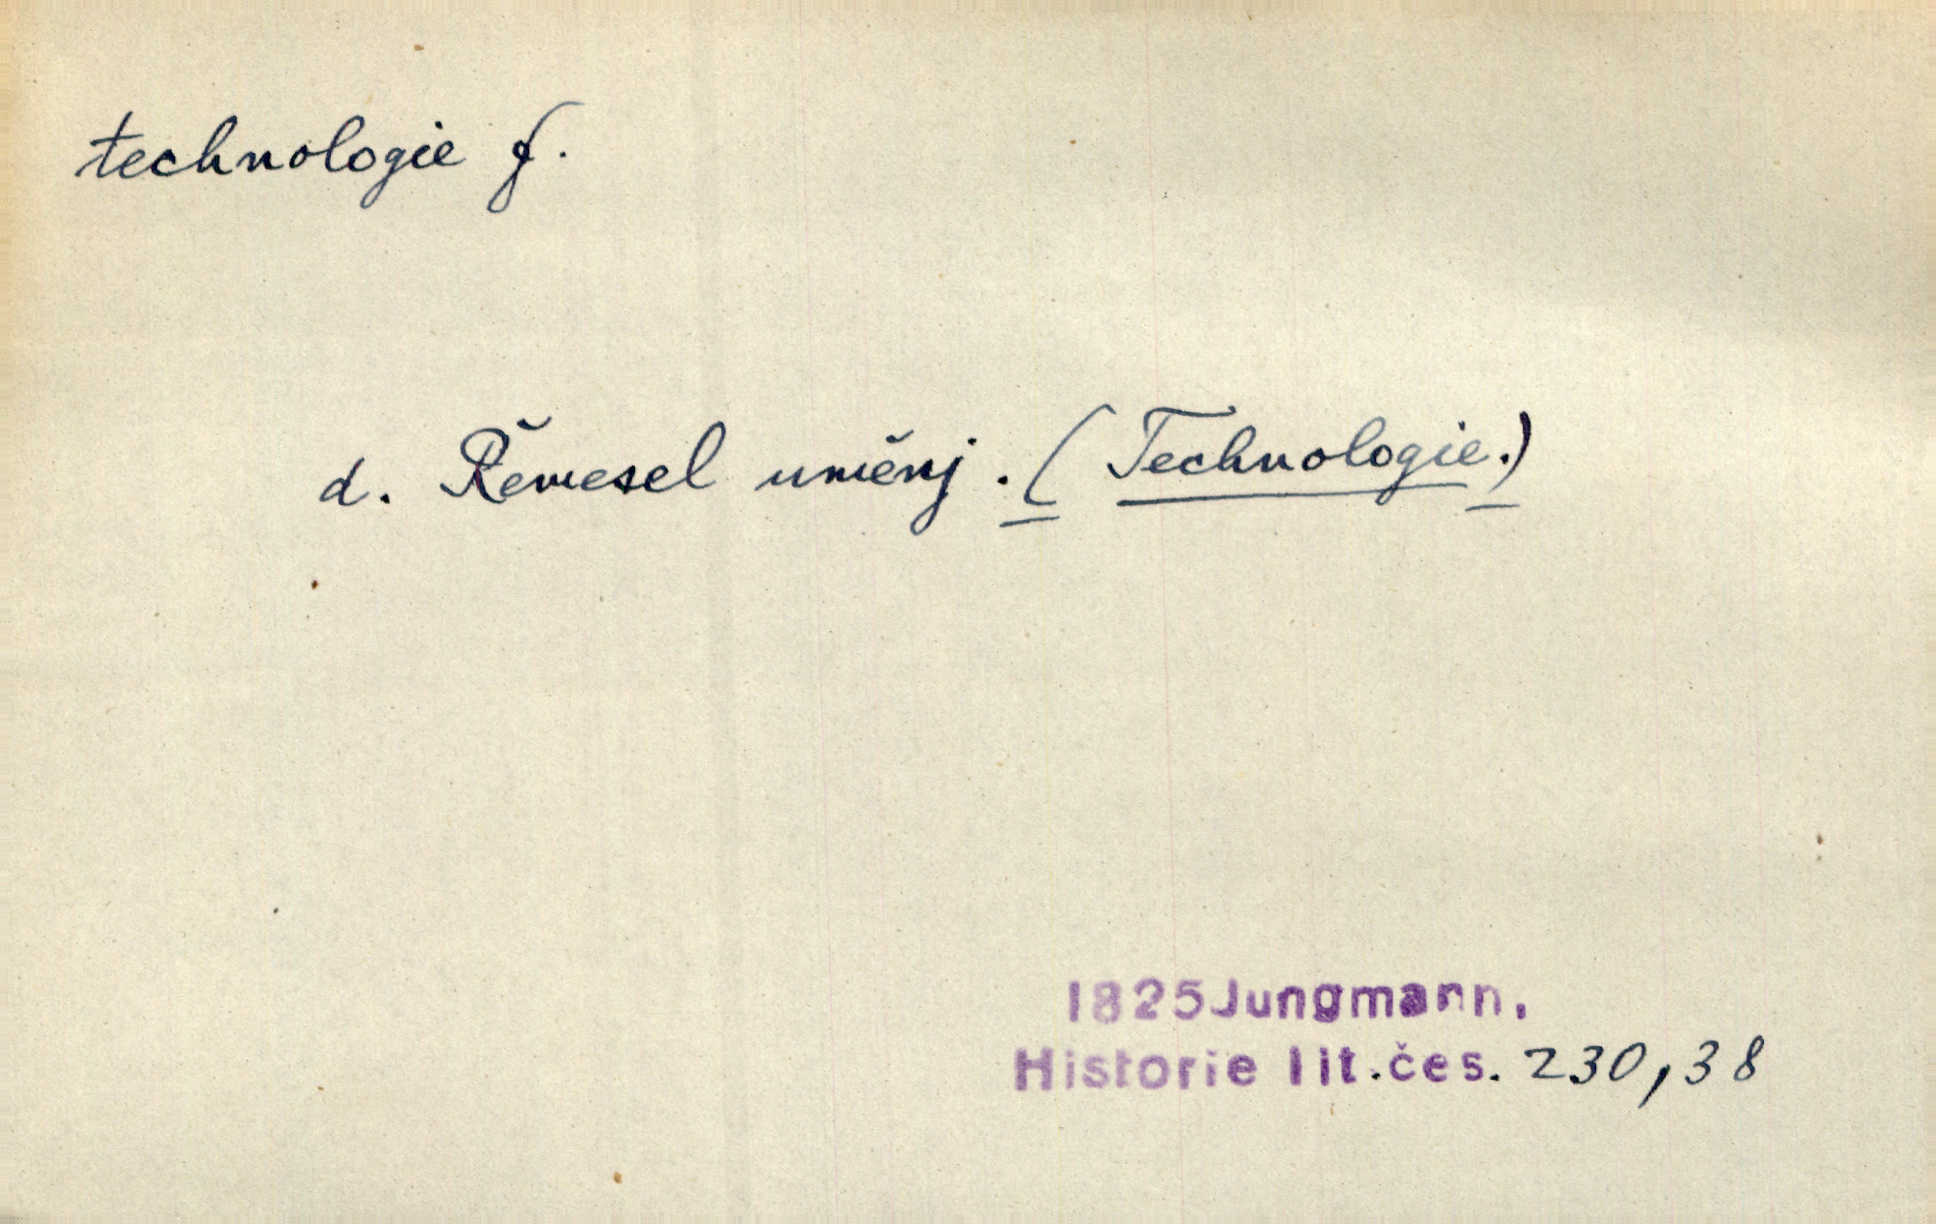 technologie f.
d. Řemesel uměnj. (Technologie.)
1825 Jungmann,
Historie lit. čes. 230,38